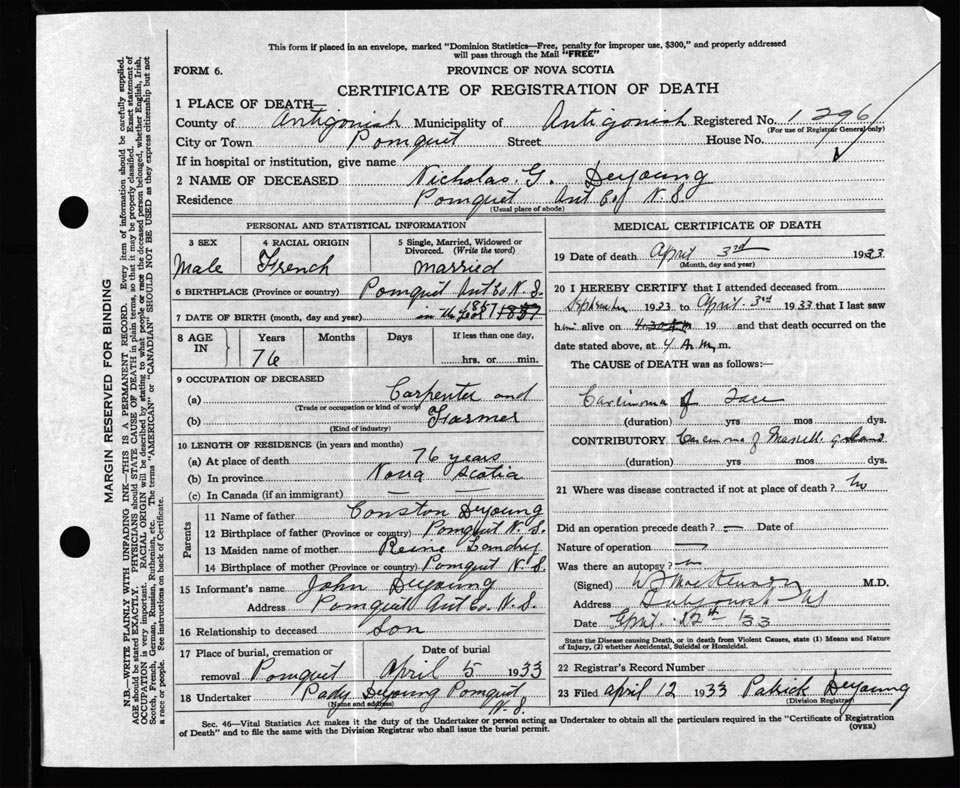 This form if placed in an envelope, marked "Dominion Statistics—Free, penalty for improper use, $300," and properly addressed
will pass through the Mail "FREE"
FORM 6.
PROVINCE OF NOVA SCOTIA
CERTIFICATE OF REGISTRATION OF DEATH
1 PLACE OF DEATH—
County of Antigonish Municipality of Antigonish Registered No. 1296
(For use of Registrar General only)
City or Town Pomquet Street House No.
If in hospital or institution, give name
2 NAME OF DECEASED Nicholas G. Deyoung
Residence Pomquet Ant Co N. S.
(Usual place of abode)
PERSONAL AND STATISTICAL INFORMATION
3 SEX 4 RACIAL ORIGIN 5 Single, Married, Widowed or Divorced. (Write the word)
Male French married
6 BIRTHPLACE (Province or country) Pomquet Ant Co. N. S.
7 DATE OF BIRTH (month, day and year) in the year 1857
8 AGE IN Years Months Days If less than one day,
76 hrs. or min.
9 OCCUPATION OF DECEASED
(a) Carpenter and
(Trade or occupation or kind of work)
(b) Farmer
(Kind of industry)
10 LENGTH OF RESIDENCE (in years and months)
(a) At place of death 76 years
(b) In province Nova Scotia
(c) In Canada (if an immigrant) — —
Parents
11 Name of father Conston Deyoung
12 Birthplace of father (Province or country) Pomquet N. S.
13 Maiden name of mother Reine Landry
14 Birthplace of mother (Province or country) Pomquet N. S.
15 Informant's name John Deyoung
Address Pomquet Ant Co. N. S.
16 Relationship to deceased Son
17 Place of burial, cremation or Date of burial
removal Pomquet April 5 1933
18 Undertaker Pady Deyoung Pomquet
(Name and address) N. S.
MEDICAL CERTIFICATE OF DEATH
19 Date of death April 3rd 1933
(Month, day and year)
20 I HEREBY CERTIFY that I attended deceased from
September 1933 to April 3rd 1933 that I last saw
him alive on 19 and that death occurred on the
date stated above, at 4 A. M. m.
The CAUSE of DEATH was as follows:—
Carcinoma of Face
(duration) yrs mos dys.
CONTRIBUTORY Carcinoma of glands
(duration) yrs mos dys.
21 Where was disease contracted if not at place of death? no
Did an operation precede death? — Date of
Nature of operation —
Was there an autopsy? no
(Signed) M.D.
Address Antigonish NS
Date April 12th /33
State the Disease causing Death, or in death from Violent Causes, state (1) Means and Nature
of Injury, (2) whether Accidental, Suicidal or Homicidal.
22 Registrar's Record Number
23 Filed April 12 1933 Patrick Deyoung
(Division Registrar)
Sec. 46—Vital Statistics Act makes it the duty of the Undertaker or person acting as Undertaker to obtain all the particulars required in the "Certificate of Registration
of Death" and to file the same with the Division Registrar who shall issue the burial permit.
(OVER)
MARGIN RESERVED FOR BINDING
N.B.—WRITE PLAINLY WITH UNFADING INK—THIS IS A PERMANENT RECORD. Every item of information should be carefully supplied.
AGE should be stated EXACTLY. PHYSICIANS should STATE CAUSE OF DEATH in plain terms, so that it may be properly classified. Exact statement of
OCCUPATION is very important. RACIAL ORIGIN will be described by stating to what people or race the deceased person belonged, whether English, Irish,
Scotch, French, German, Russian, Ruthenian, etc. The terms "AMERICAN" or "CANADIAN" SHOULD NOT BE USED as they express citizenship but not
a race or people. See instructions on back of Certificate.